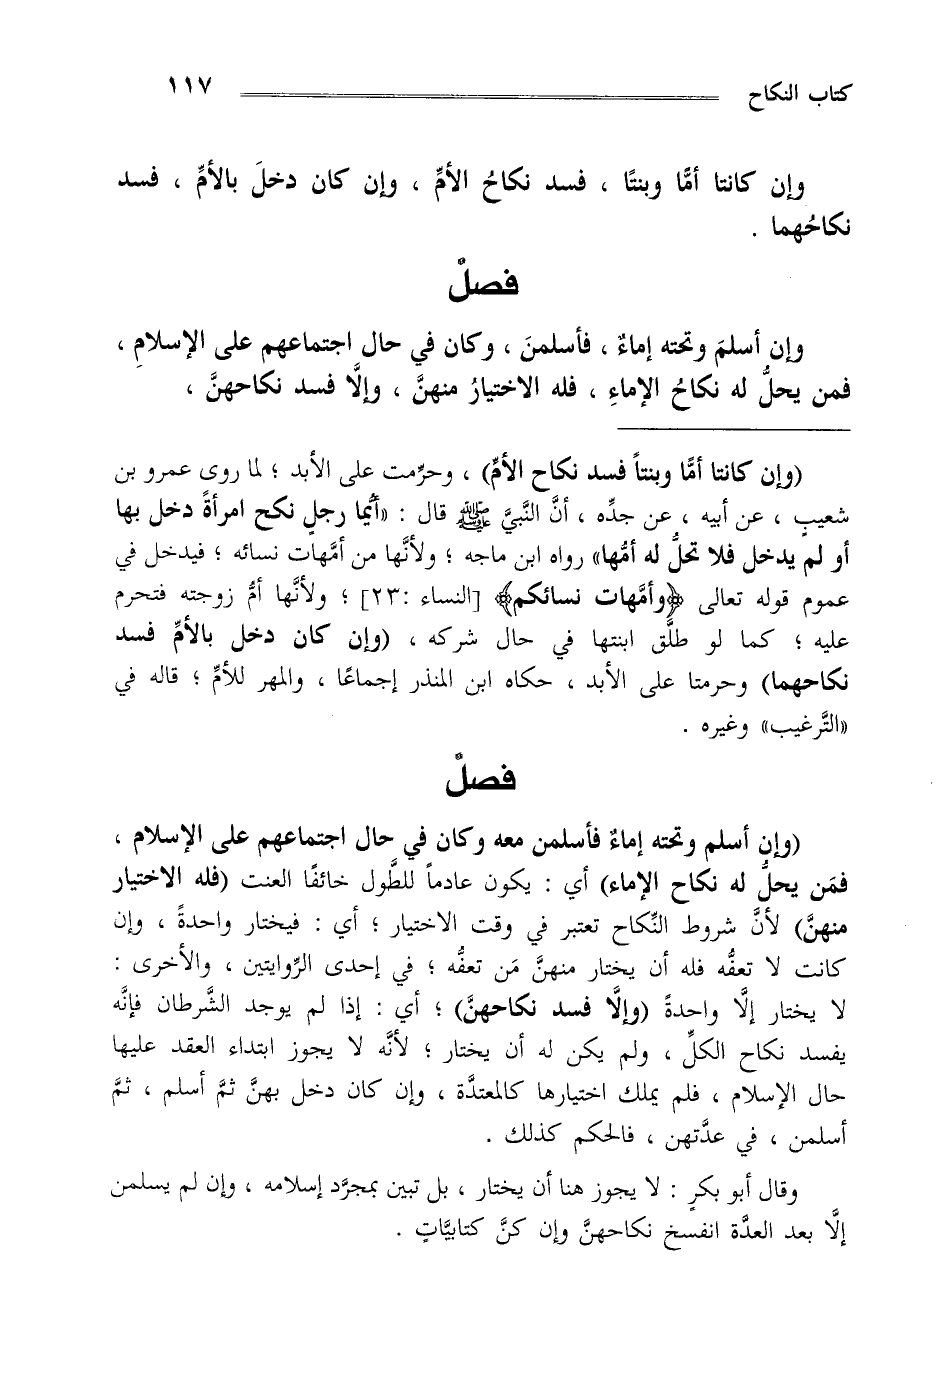 كتاب النكاح ١١٧
وإن كانتا أمًّا وبنتًا ، فسد نكاحُ الأمِّ ، وإن كان دخلَ بالأمِّ ، فسد
نكاحُهما .
فصلٌ
وإن أسلمَ وتحته إماءٌ ، فأسلمنَ ، وكان في حال اجتماعهم على الإسلامِ ،
فمن يحلُّ له نكاحُ الإماءِ ، فله الاختيارُ منهنَّ ، وإلَّا فسد نكاحهنَّ ،
(وإن كانتا أمًّا وبنتاً فسد نكاح الأمِّ) ، وحرِّمت على الأبد ؛ لما روى عمرو بن
شعيبٍ ، عن أبيه ، عن جدِّه ، أنَّ النَّبيَّ ﷺ قال : «أيُّما رجلٍ نكح امرأةً دخل بها
أو لم يدخل فلا تحلُّ له أمُّها» رواه ابن ماجه ؛ ولأنَّها من أمَّهات نسائه ؛ فيدخل في
عموم قوله تعالى ﴿وأمَّهات نسائكم﴾ [النساء :٢٣] ؛ ولأنَّها أمُّ زوجته فتحرم
عليه ؛ كما لو طلَّق ابنتها في حال شركه ، (وإن كان دخل بالأمِّ فسد
نكاحهما) وحرمتا على الأبد ، حكاه ابن المنذر إجماعًا ، والمهر للأمِّ ؛ قاله في
«التَّرغيب» وغيره .
فصلٌ
(وإن أسلم وتحته إماءٌ فأسلمن معه وكان في حال اجتماعهم على الإسلام ،
فمَن يحلُّ له نكاح الإماء) أي : يكون عادماً للطَّول خائفًا العنت (فله الاختيار
منهنَّ) لأنَّ شروط النِّكاح تعتبر في وقت الاختيار ؛ أي : فيختار واحدةً ، وإن
كانت لا تعفُّه فله أن يختار منهنَّ مَن تعفُّه ؛ في إحدى الرِّوايتين ، والأخرى :
لا يختار إلَّا واحدةً (وإلَّا فسد نكاحهنَّ) ؛ أي : إذا لم يوجد الشَّرطان فإنَّه
يفسد نكاح الكلِّ ، ولم يكن له أن يختار ؛ لأنَّه لا يجوز ابتداء العقد عليها
حال الإسلام ، فلم يملك اختيارها كالمعتدَّة ، وإن كان دخل بهنَّ ثمَّ أسلم ، ثمَّ
أسلمن ، في عدَّتهن ، فالحكم كذلك .
وقال أبو بكرٍ : لا يجوز هنا أن يختار ، بل تبين بمجرَّد إسلامه ، وإن لم يسلمن
إلَّا بعد العدَّة انفسخ نكاحهنَّ وإن كنَّ كتابيَّاتٍ .